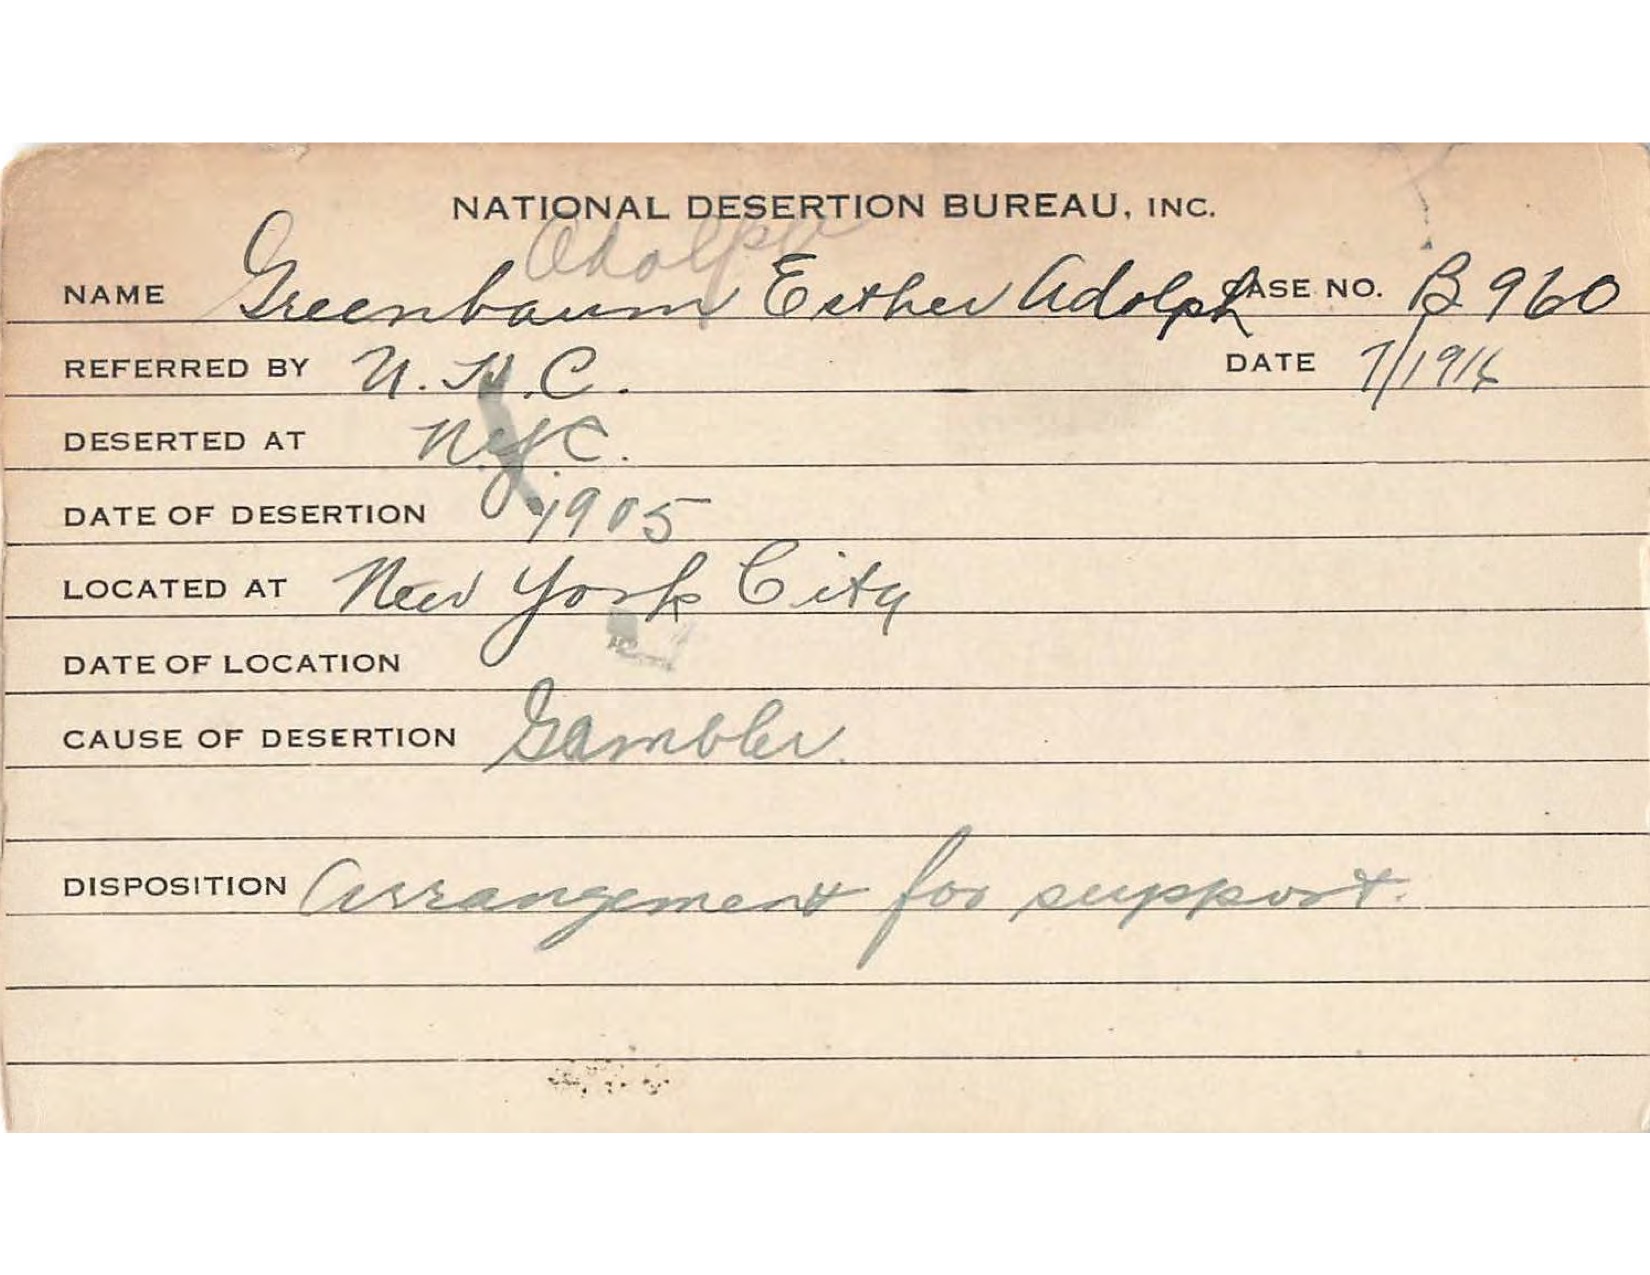 NATIONAL DESERTION BUREAU, INC.
Adolph
NAME Greenbaum Esther Adolph CASE NO. B960
REFERRED BY U.H.C. DATE 7/1916
DESERTED AT N.Y.C.
DATE OF DESERTION 1905
LOCATED AT New York City
DATE OF LOCATION
CAUSE OF DESERTION Gambler.
DISPOSITION Arrangement for support.